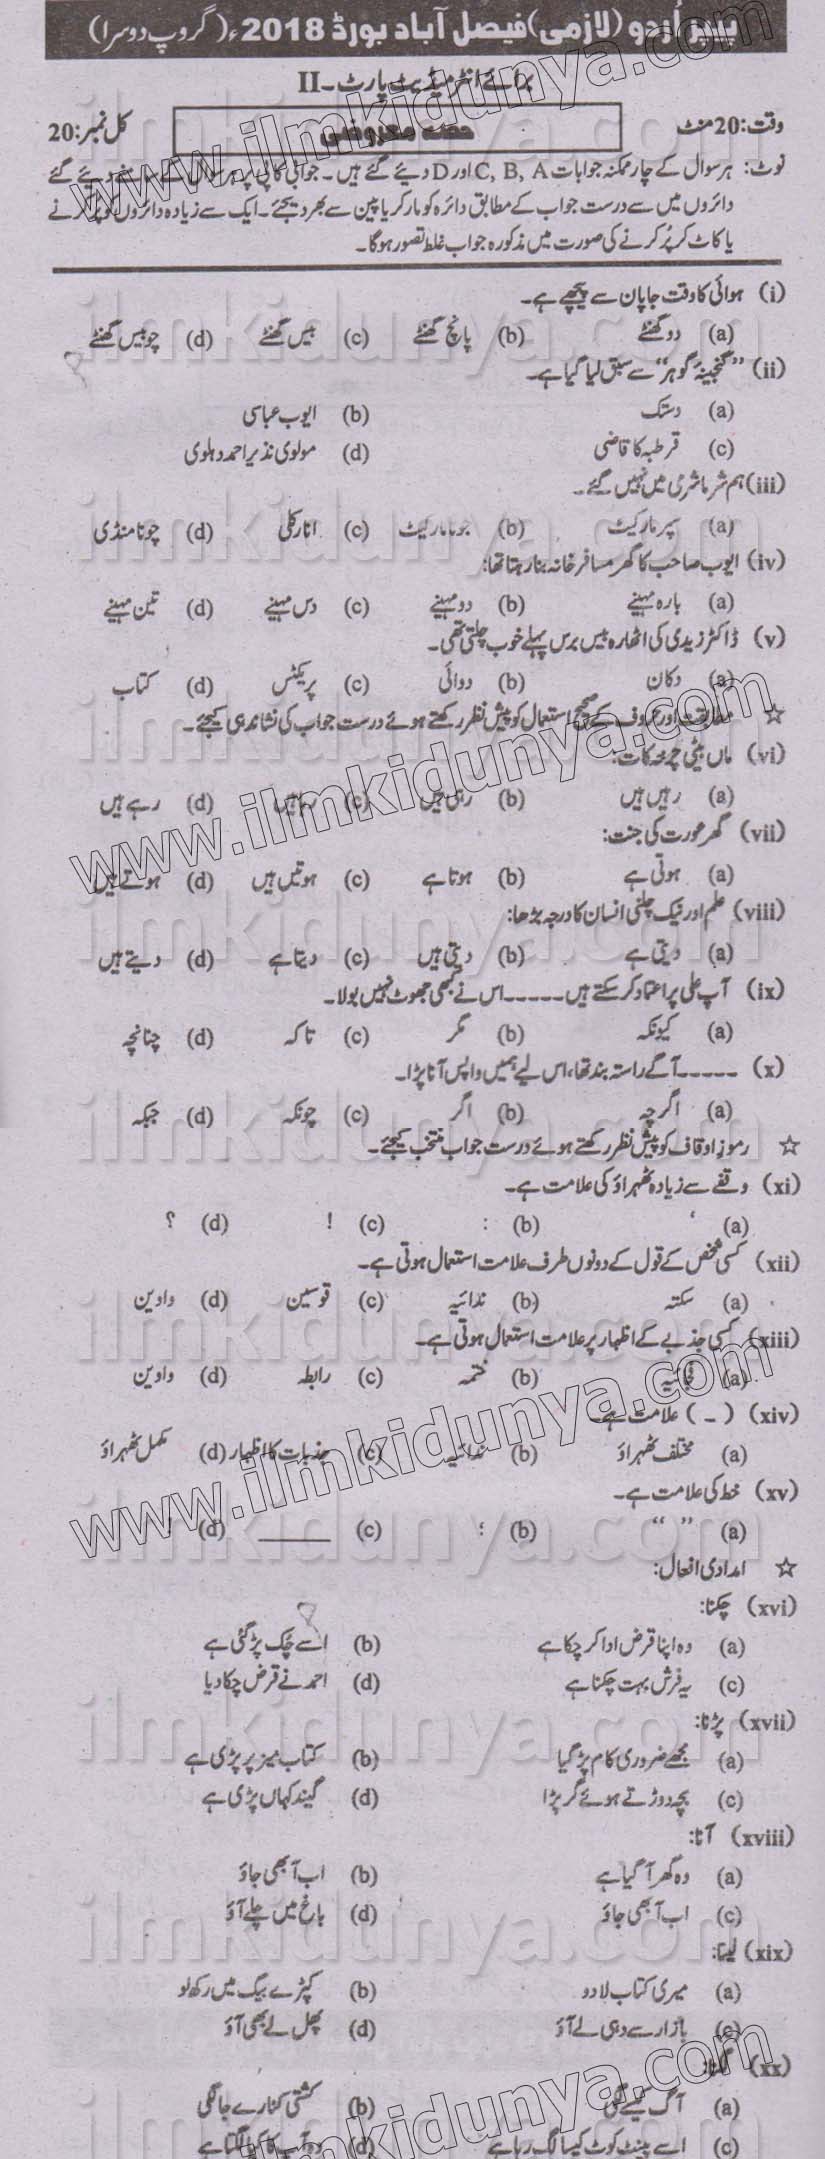 پیپر اُردو (لازمی) فیصل آباد بورڈ 2018ء (گروپ دوسرا)
برائے انٹرمیڈیٹ پارٹ۔II
وقت: 20 منٹ حصہ معروضی کل نمبر: 20
نوٹ: ہر سوال کے چار ممکنہ جوابات C, B, A اور D دیے گئے ہیں۔ جوابی کاپی پر ہر سوال کے سامنے دیے گئے
دائروں میں سے درست جواب کے مطابق دائرہ کو مارکر یا پین سے بھر دیجئے۔ ایک سے زیادہ دائروں کو پُر کرنے
یا کاٹ کر پُر کرنے کی صورت میں مذکورہ جواب غلط تصور ہوگا۔
(i) ہوائی کا وقت جاپان سے پیچھے ہے۔
(a) دو گھنٹے (b) پانچ گھنٹے (c) بیس گھنٹے (d) چوبیس گھنٹے
(ii) ”گنجینۂ گوہر“ سے سبق لیا گیا ہے۔
(a) دستک (b) ایوب عباسی
(c) قرطبہ کا قاضی (d) مولوی نذیر احمد دہلوی
(iii) ہم شرما شرمی میں نہیں گئے۔
(a) سپر مارکیٹ (b) جونا مارکیٹ (c) انارکلی (d) چونا منڈی
(iv) ایوب صاحب کا گھر مسافر خانہ بنا رہتا تھا:
(a) بارہ مہینے (b) دو مہینے (c) دس مہینے (d) تین مہینے
(v) ڈاکٹر زیدی کی اٹھارہ بیس برس پہلے خوب چلتی تھی۔
(a) دکان (b) دوائی (c) پریکٹس (d) کتاب
☆ مطابقت اور حروف کے صحیح استعمال کو پیش نظر رکھتے ہوئے درست جواب کی نشاندہی کیجئے۔
(vi) ماں بیٹی چرخہ کات:
(a) رہیں ہیں (b) رہی ہیں (c) رہا ہیں (d) رہے ہیں
(vii) گھر عورت کی جنت:
(a) ہوتی ہے (b) ہوتا ہے (c) ہوتیں ہیں (d) ہوتے ہیں
(viii) علم اور نیک چلنی انسان کا درجہ بڑھا:
(a) دیتی ہے (b) دیتی ہیں (c) دیتا ہے (d) دیتے ہیں
(ix) آپ علی پر اعتماد کر سکتے ہیں ۔۔۔۔۔ اس نے کبھی جھوٹ نہیں بولا۔
(a) کیونکہ (b) مگر (c) تاکہ (d) چنانچہ
(x) ۔۔۔۔۔ آگے راستہ بند تھا، اس لیے ہمیں واپس آنا پڑا۔
(a) اگرچہ (b) اگر (c) چونکہ (d) جبکہ
☆ رموزِ اوقاف کو پیش نظر رکھتے ہوئے درست جواب منتخب کیجئے۔
(xi) وقفے سے زیادہ ٹھہراؤ کی علامت ہے۔
(a) ‘ (b) : (c) ! (d) ؟
(xii) کسی شخص کے قول کے دونوں طرف علامت استعمال ہوتی ہے۔
(a) سکتہ (b) ندائیہ (c) قوسین (d) واوین
(xiii) کسی جذبے کے اظہار پر علامت استعمال ہوتی ہے۔
(a) فجائیہ (b) ختمہ (c) رابطہ (d) واوین
(xiv) (۔) علامت ہے۔
(a) مختلف ٹھہراؤ (b) ندائیہ (c) جذبات کا اظہار (d) مکمل ٹھہراؤ
(xv) خط کی علامت ہے۔
(a) “ ” (b) ؛ (c) ______ (d) !
☆ امدادی افعال:
(xvi) چکنا:
(a) وہ اپنا قرض ادا کر چکا ہے (b) اسے چُک پڑ گئی ہے
(c) یہ فرش بہت چکنا ہے (d) احمد نے قرض چکا دیا
(xvii) پڑنا:
(a) مجھے ضروری کام پڑ گیا (b) کتاب میز پر پڑی ہے
(c) بچہ دوڑتے ہوئے گر پڑا (d) گیند کہاں پڑی ہے
(xviii) آنا:
(a) وہ گھر آ گیا ہے (b) اب آ بھی جاؤ
(c) اب آ بھی جاؤ (d) باغ میں چلے آؤ
(xix) لینا:
(a) میری کتاب لا دو (b) کپڑے بیگ میں رکھ لو
(c) بازار سے دہی لے آؤ (d) پھل لے بھی آؤ
(xx) لگنا:
(a) آگ کیسے لگی (b) کشتی کنارے جا لگی
(c) اسے پینٹ کوٹ کیسا لگ رہا ہے (d) وہ آپ کا کیا لگتا ہے
www.ilmkidunya.com